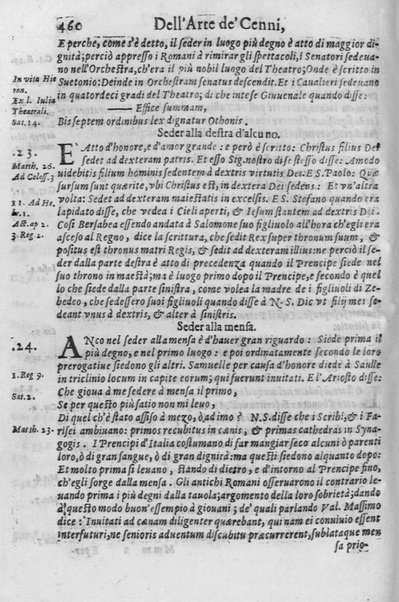 460
Dell'Arte de' Cenni,
E perche, come s'è detto, il seder in luogo più degno è atto di maggior di-
gnità; perciò appresso i Romani à rimirar gli spettacoli, i Senatori sedeua-
no nell'Orchestra, ch'era il più nobil luogo del Theatro; Onde è scritto in
In vita Hie
ron.
Suetonio: Deinde in Orchestram senatus descendit. Et i Caualieri sedeuano
Ex l. Iulia
in quatordeci gradi del Theatro; di che intese Giuuenale quando disse:
Theatrali.
— Effice summam,
Sat. 14.
Bis septem ordinibus lex dignatur Othonis.
Seder alla destra d'alcuno.
23.
E' Atto d'honore, e d'amor grande: e però è scritto: Christus filius Dei
Matth. 26.
sedet ad dexteram patris. Et esso Sig. nostro di se stesso disse: Amodo
Ad Coloss. 3
uidebitis filium hominis sedentem à dextris virtutis Dei. E S. Paolo: Quæ
sursum sunt querite, vbi Christus est, in dextera Dei sedens: Et vn'altra
11. Ad He
volta: Sedet ad dexteram maiestatis in excelsis. E S. Stefano quando era
b. 1.
lapidato disse, che vedea i Cieli aperti, & Iesum stantem ad dextris Dei.
Act. ap. 2.
Così Bersabea essendo andata à Salomone suo figliuolo all'hora ch'egli era
3. Reg. 2.
asceso al Regno, dice la scrittura, che sedit Rex super thronum suum, &
positus est thronus matri Regis, & sedit ad dexteram illius: ne perciò il se-
der dalla parte destra è atto di precedenza quando il Prencipe siede nel
suo throno in maestà; ma è luogo primo dopo il Prencipe, e secondo è quel
lo che siede dalla parte sinistra, come volea la madre de i figliuoli di Ze-
bedeo, che sedessero suoi figliuoli quando disse à N. S. Dic vt filij mei se-
deant vnus à dextris, & alter à sinistris.
Seder alla mensa.
24.
ANco nel seder alla mensa è d'hauer gran riguardo: Siede prima il
più degno, e nel primo luogo: e poi ordinatamente secondo le loro
1. Reg 9.
prerogatiue siedono gli altri. Samuelle per causa d'honore diede à Saulle
in triclinio locum in capite eorum; qui fuerunt inuitati. E l'Ariosto disse:
Sat. 2.
Che gioua à me sedere à mensa il primo,
Se per questo più satio non mi leuo,
Di quel ch'è stato assiso à mezo, ò ad imo?
Matth. 23.
N. S. disse che i Scribi, & i Fa-
risei ambiuano: primos recubitus in cænis, & primas cathedras in Syna-
gogis. I Prencipi d'Italia costumano di far mangiar seco alcuni ò parenti
loro, ò di gran sangue, ò di gran dignità: ma questi siedono alquanto dopo:
Et molto prima si leuano, stando di dietro, e d'intorno al Prencipe fino,
ch'egli sorge dalla mensa. Gli antichi Romani osseruarono il contrario le-
uando prima i più degni dalla tauola; argomento della loro sobrietà; dando
à questo modo buon'essempio à giouani; de' quali parlando Val. Massimo
dice: Inuitati ad cœnam diligenter quærebant, qui nam ei conuiuio essent
interfuturi, ne senioris aduentum discubitu præcurrerent, sublataque men
sa prio-